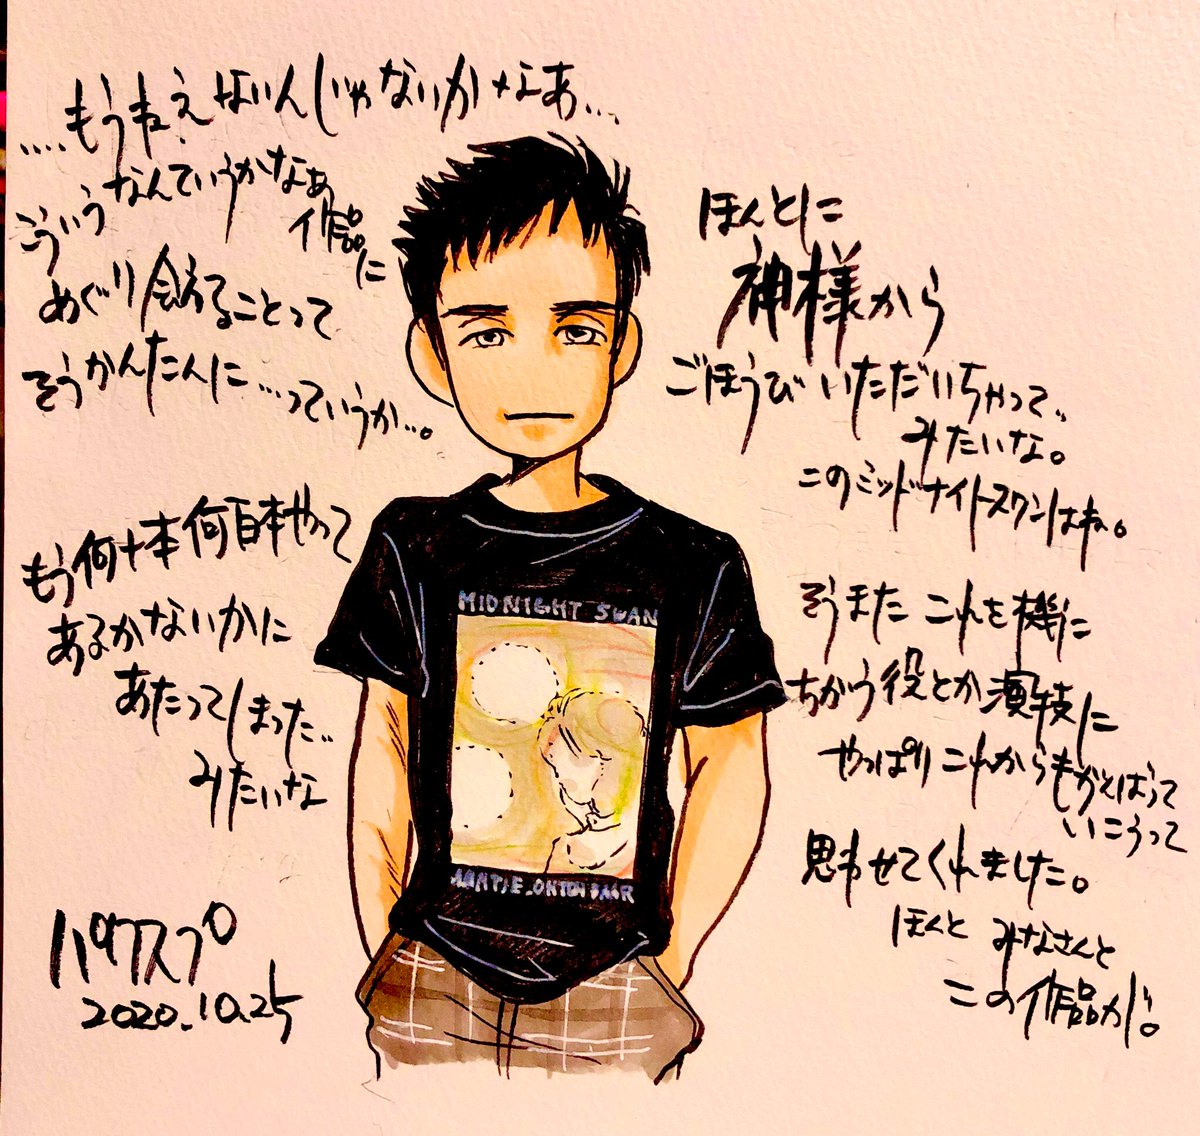 ....もうねえ ないんじゃないかなあ...
こういう なんていうかなぁ
作品に
めぐり会えることって
そうかんたんに...っていうか...。
もう何十本何百本やって
あるかないかに
あたってしまった..
みたいな
パクスプ
2020.10.25
ほんとに
神様から
ごほうび いただいちゃって..
みたいな。
このミッドナイトスワンはね。
そうまた これを機に
ちがう役とか演技に
やっぱり これからもがんばって
いこうって
思わせてくれました。
ほんと みなさんと
この作品が。
MIDNIGHT SWAN